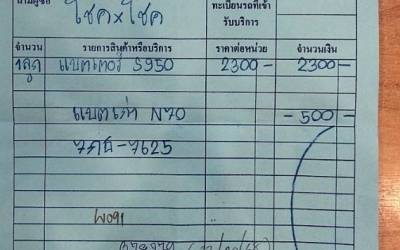 นามผู้ซื้อ โชค x โชค ทะเบียนรถที่เข้า
รับบริการ
จำนวน รายการสินค้าหรือบริการ ราคาต่อหน่วย จำนวนเงิน
1 ลูก แบตเตอรี่ S950 2300- 2300-
แบตเก่า N70 -500-
7625